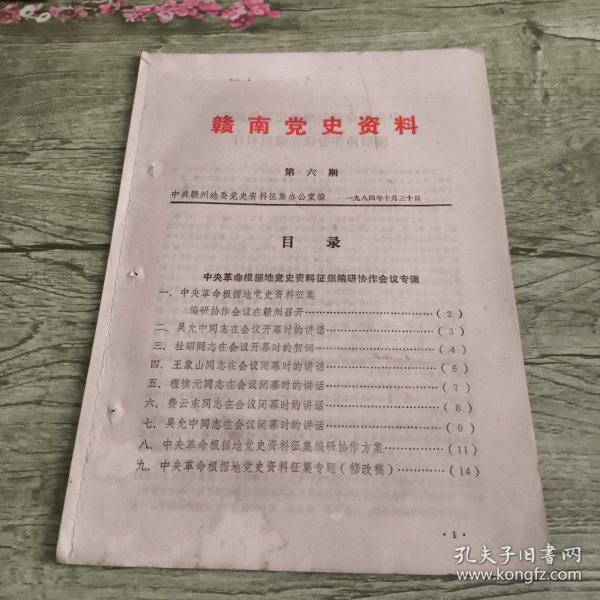 赣南党史资料
第六期
中共赣州地委党史资料征集办公室编 一九八四年十月三十日
目 录
中央革命根据地党史资料征集编研协作会议专辑
一、中央革命根据地党史资料征集
编研协作会议在赣州召开…………………………(2)
二、吴允中同志在会议开幕时的讲话…………………(3)
三、杜昭同志在会议开幕时的贺词……………………(4)
四、王象山同志在会议闭幕时的讲话…………………(6)
五、程慎元同志在会议闭幕时的讲话…………………(7)
六、费云东同志在会议闭幕时的讲话…………………(8)
七、吴允中同志在会议闭幕时的讲话…………………(9)
八、中央革命根据地党史资料征集编研协作方案…………(11)
九、中央革命根据地党史资料征集专题(修改稿)…………(14)
·1·
孔夫子旧书网
www.kongfz.com